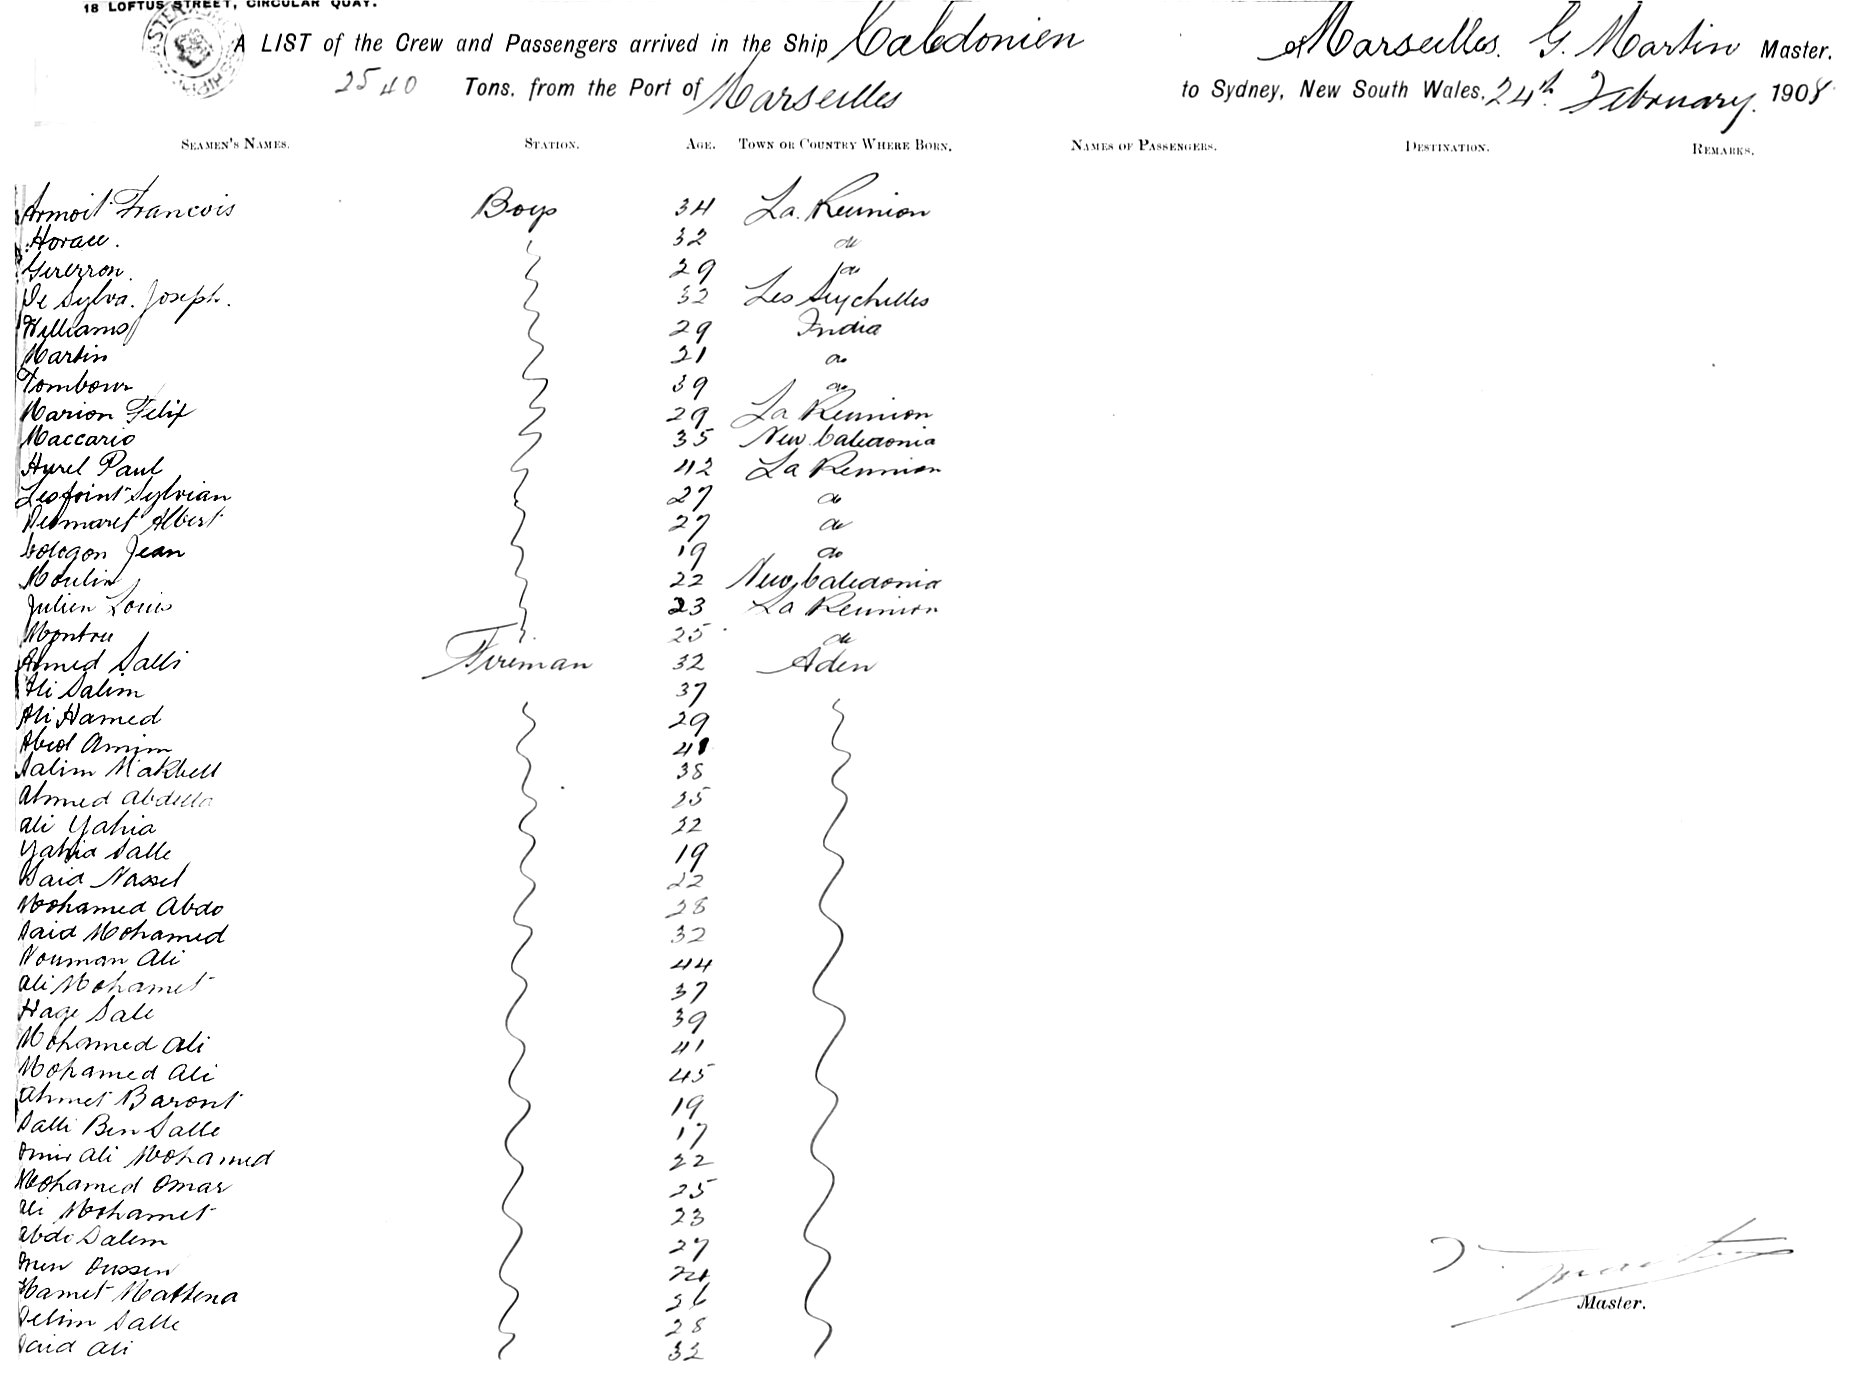 18 LOFTUS STREET, CIRCULAR QUAY.
A LIST of the Crew and Passengers arrived in the Ship Caledonien of Marseilles. G. Martin Master.
2540 Tons. from the Port of Marseilles to Sydney, New South Wales, 24th February 1908
SEAMEN'S NAMES. STATION. AGE. TOWN OR COUNTRY WHERE BORN. NAMES OF PASSENGERS. DESTINATION. REMARKS.
Armoit Francois Boys 34 La Reunion
Horace. 32 do
29 do
De Sylva. Joseph. 32 Les Seychelles
Williams 29 India
Martin 21 do
Tombour 39 do
Marion Felix 29 La Reunion
Maccario 35 New Caledonia
Hurel Paul 42 La Reunion
Lesfoint Sylvian 27 do
Desmaret Albert 27 do
Cologon Jean 19 do
Moulin 22 New Caledonia
Julien Louis 23 La Reunion
Montru 25 do
Ahmed Salli Fireman 32 Aden
Ali Salim 37
Ali Hamed 29
Abed Amim 41
Salim Makbell 38
Ahmed Abdella 25
Ali Yahia 22
Yahia Salle 19
Said Nassel 22
Mohamed Abdo 28
Said Mohamed 32
Nouman Ali 44
Ali Mohamet 37
Hage Sale 39
Mohamed Ali 41
Mohamed Ali 45
Ahmet Baront 19
Salli Ben Salle 17
Omir Ali Mohamed 22
Mohamed Omar 25
Ali Mohamet 23
Abdo Salem 27
Oussen 24
Hamet Mattena 26
Selim Salle 28
Said Ali 32
Master.